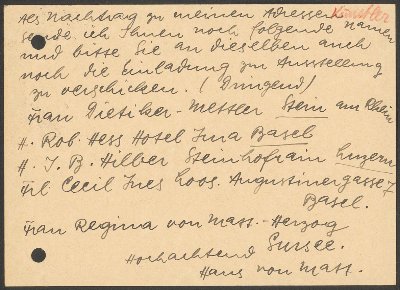 Als Nachtrag zu meinen Adressen Künstler
sende ich Ihnen noch folgende Namen
und bitte Sie an dieselben auch
noch die Einladung zur Ausstellung
zu verschicken. (Dringend)
Frau Dietiker-Mettler Stein am Rhein
H. Rob. Hess Hotel Jura Basel
H. J. B. Hilber Steinhofrain Luzern
Frl Cecil Ines Loos. Augustinergasse 7
Basel.
Frau Regina von Matt-Herzog
Sursee.
Hochachtend
Hans von Matt.